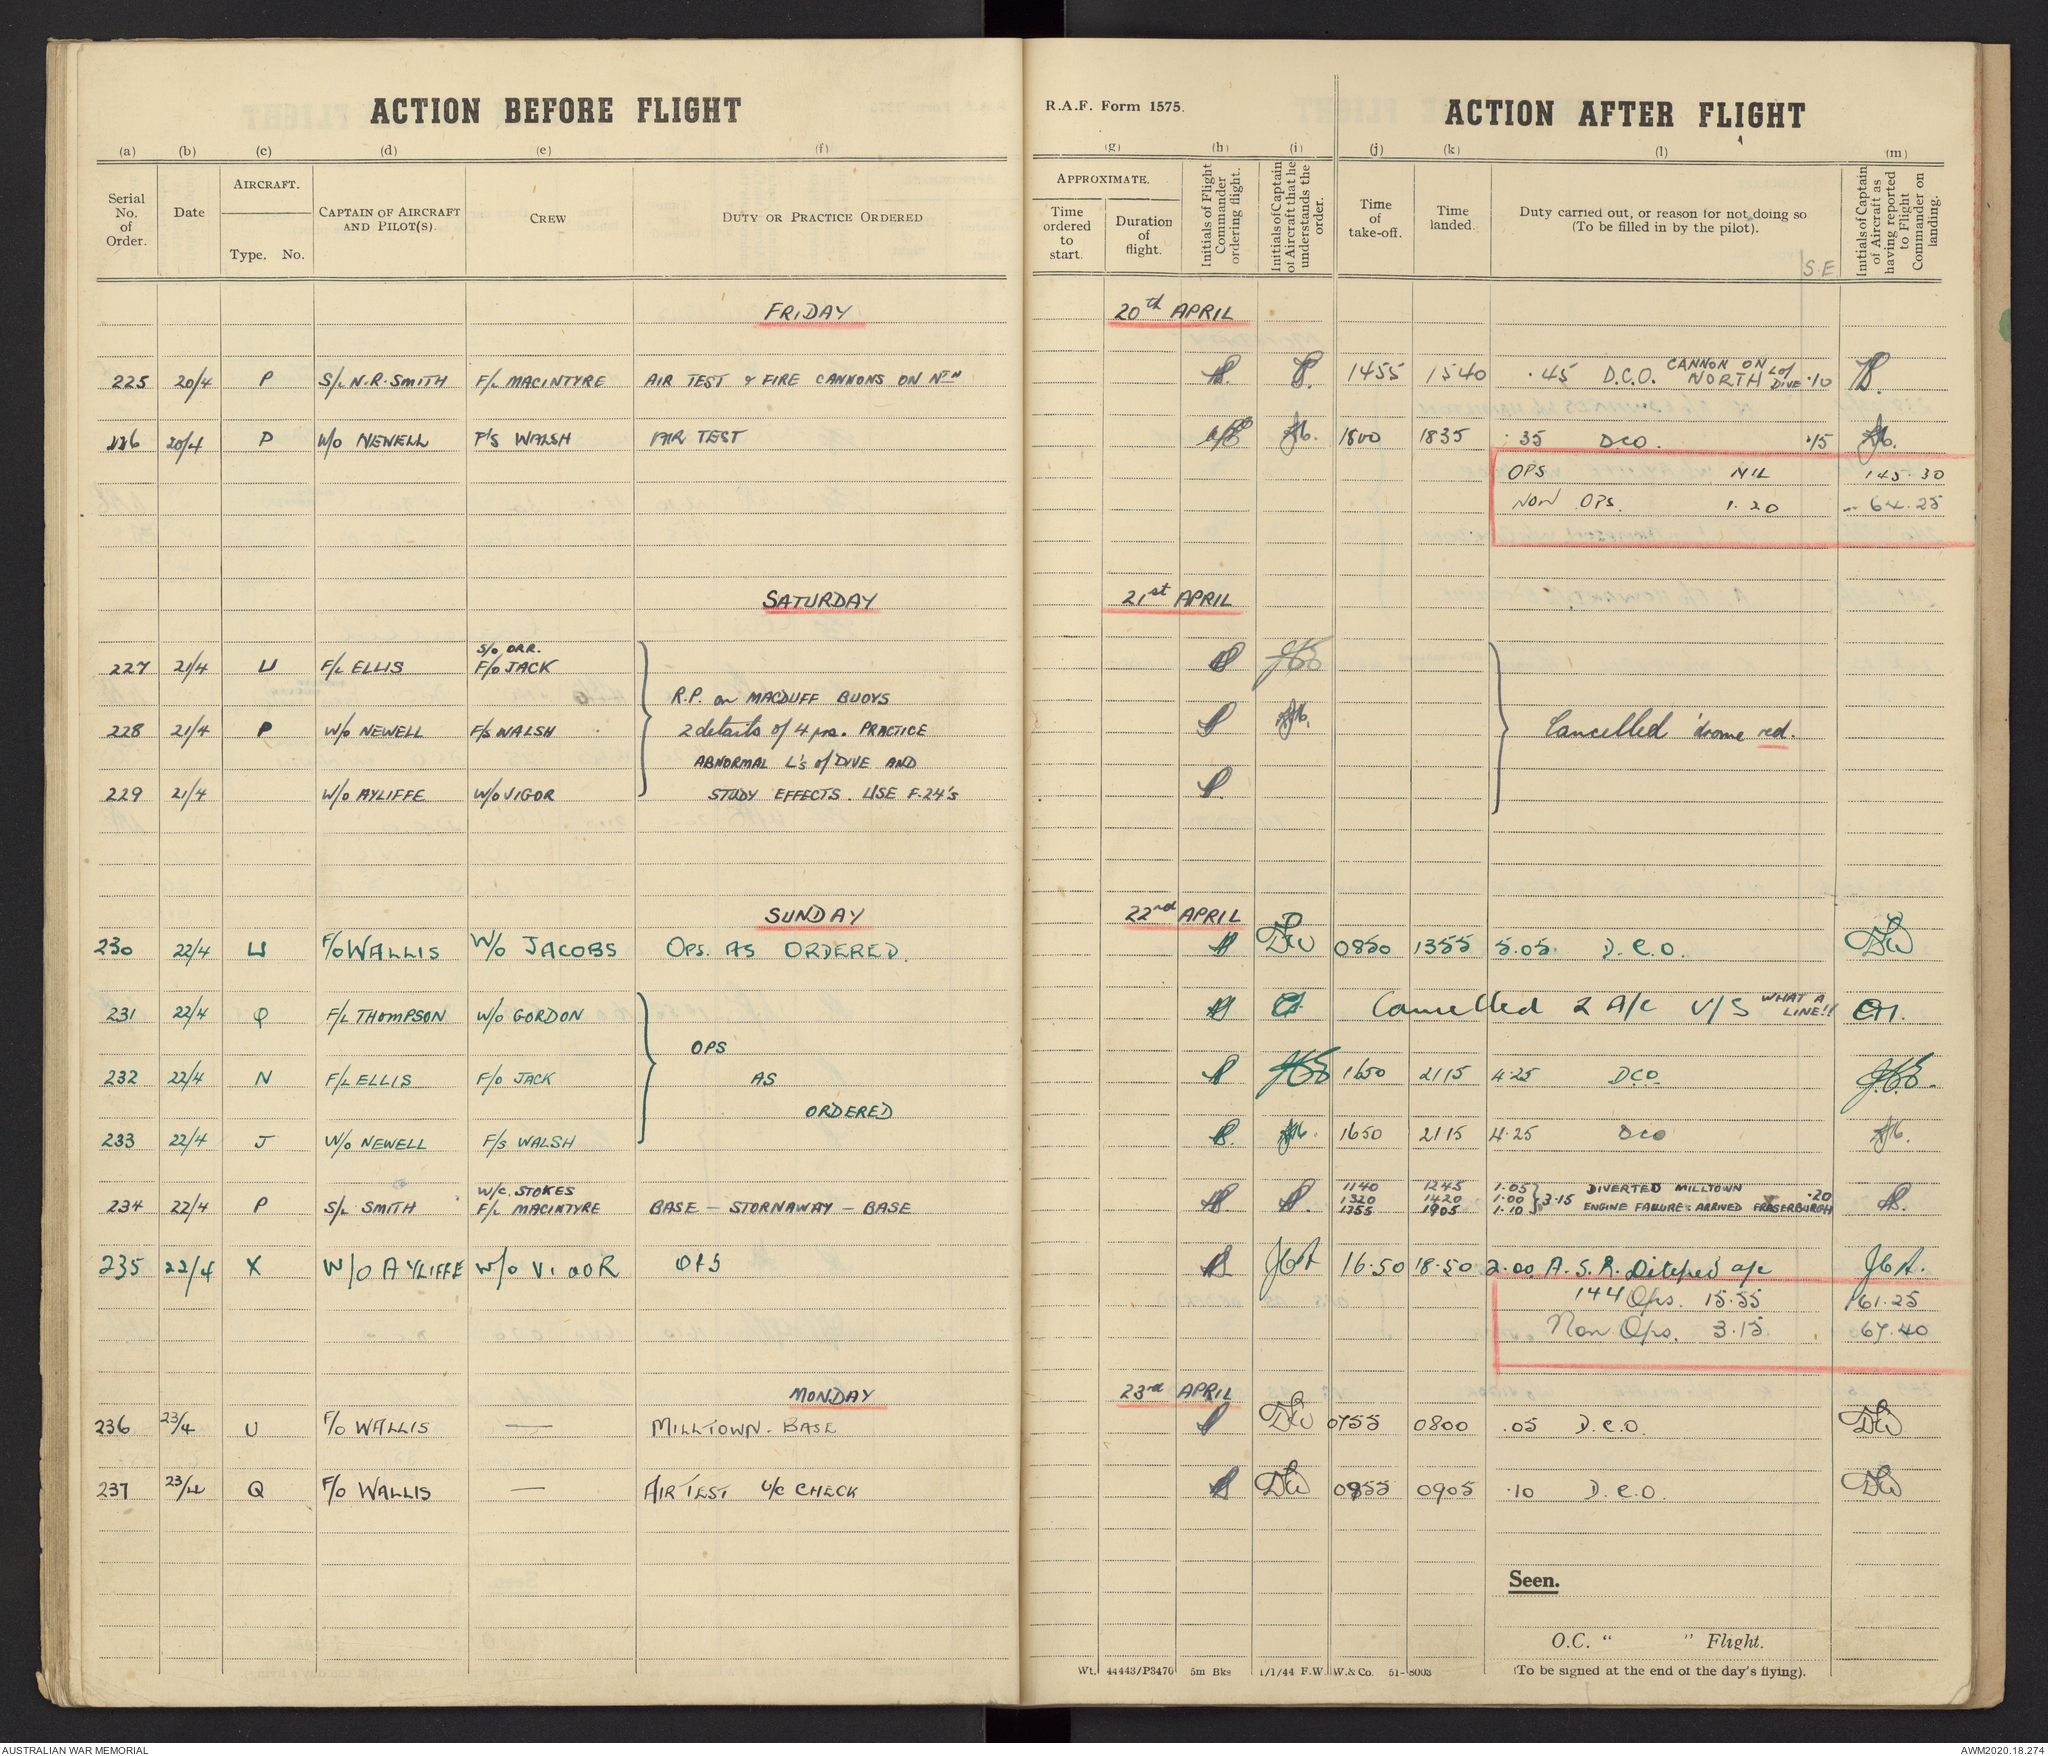 ACTION BEFORE FLIGHT
R.A.F. Form 1575.
ACTION AFTER FLIGHT
(a) (b) (c) (d) (e) (f) (g) (h) (i) (j) (k) (l) (m)
Serial No. of Order.
Date
AIRCRAFT.
Type. No.
CAPTAIN OF AIRCRAFT AND PILOT(S).
CREW
DUTY OR PRACTICE ORDERED
APPROXIMATE.
Time ordered to start.
Duration of flight.
Initials of Flight Commander ordering flight.
Initials of Captain of Aircraft that he understands the order.
Time of take-off.
Time landed.
Duty carried out, or reason for not doing so (To be filled in by the pilot).
S.E.
Initials of Captain of Aircraft as having reported to Flight Commander on landing.
FRIDAY 20th APRIL
225 20/4 P S/L N.R. SMITH F/L MACINTYRE AIR TEST & FIRE CANNONS ON NTH 1455 1540 .45 D.C.O. CANNON ON NORTH L of DIVE .10
226 20/4 P W/O NEWELL F/S WALSH AIR TEST 1800 1835 .35 DCO. .15
OPS NIL 145.30
NON OPS. 1.20 64.25
SATURDAY 21st APRIL
S/O ORR.
227 21/4 U F/L ELLIS F/O JACK
R.P. on MACDUFF BUOYS
228 21/4 P W/O NEWELL F/S WALSH 2 details of 4 prs. PRACTICE Cancelled 'drome red.
ABNORMAL L's of DIVE AND
229 21/4 W/O AYLIFFE W/O VIGOR STUDY EFFECTS. USE F.24's
SUNDAY 22nd APRIL
230 22/4 U F/O WALLIS W/O JACOBS OPS. AS ORDERED. DW 0850 1355 5.05 D.C.O. DW
231 22/4 Q F/L THOMPSON W/O GORDON Cancelled 2 A/c U/S WHAT A LINE!!
OPS
232 22/4 N F/L ELLIS F/O JACK AS 1650 2115 4.25 DCO.
ORDERED
233 22/4 J W/O NEWELL F/S WALSH 1650 2115 4.25 DCO
W/C. STOKES 1140 1245 1.05 DIVERTED MILLTOWN
234 22/4 P S/L SMITH F/L MACINTYRE BASE – STORNAWAY – BASE 1320 1420 1.00 3.15 .20
1755 1905 1.10 ENGINE FAILURE: ARRIVED FRASERBURGH
235 22/4 X W/O AYLIFFE W/O VIGOR OPS 16.50 18.50 2.00 A.S.R. Ditched a/c
144 Ops. 15.55 161.25
Non Ops. 3.15 67.40
MONDAY 23rd APRIL
236 23/4 U F/O WALLIS — MILLTOWN. BASE DW 0755 0800 .05 D.C.O. DW
237 23/4 Q F/O WALLIS — AIR TEST U/C CHECK DW 0855 0905 .10 D.C.O. DW
Seen.
O.C. “ ” Flight.
Wt. 44443/P3470 5m Bks 1/1/44 F.W. W.& Co. 51-8003 (To be signed at the end of the day's flying).
AUSTRALIAN WAR MEMORIAL
AWM2020.18.274